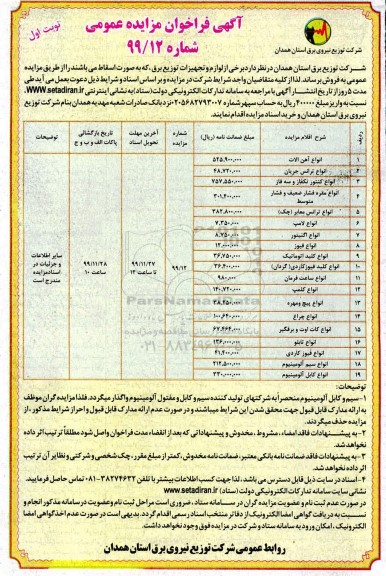 آگهی فراخوان مزایده عمومی
شماره ۹۹/۱۲
نوبت اول
شرکت توزیع نیروی برق استان همدان
شرکت توزیع برق استان همدان در نظر دارد برخی از لوازم و تجهیزات توزیع برق، که به صورت اسقاط می باشند را از طریق مزایده
عمومی به فروش برساند. لذا از کلیه متقاضیان واجد شرایط شرکت در مزایده و بر اساس اسناد و شرایط ذیل دعوت بعمل می آید طی
مدت ۵ روز از تاریخ انتشار آگهی با مراجعه به سامانه تدارکات الکترونیکی دولت (ستاد) به نشانی اینترنتی www.setadiran.ir
نسبت به واریز مبلغ ۴۰۰۰۰۰ ریال به حساب سپهر شماره ۰۲۰۵۶۸۲۷۹۳۰۰۷ نزد بانک صادرات شعبه مهدیه همدان بنام شرکت توزیع
نیروی برق استان همدان و خرید اسناد مزایده اقدام نمایند.
ردیف شرح اقلام مزایده مبلغ ضمانت نامه (ریال) شماره مزایده آخرین مهلت تحویل اسناد تاریخ بازگشائی پاکات الف و ب و ج توضیحات
۱ انواع آهن آلات ۵۲۵,۹۰۰,۰۰۰
۲ انواع ترانس جریان ۴۸,۷۲۰,۰۰۰
۳ انواع کنتور تکفاز و سه فاز ۷۵۷,۵۵۰,۰۰۰
۴ انواع مقره فشار ضعیف و فشار متوسط ۳۰۱,۴۰۰,۰۰۰
۵ انواع ترانس معابر (چک) ۳۸۲,۸۰۰,۰۰۰
۶ انواع لامپ ۷,۳۵۰,۰۰۰
۷ انواع اگنیتور ۸,۷۵۰,۰۰۰
۸ انواع فیوز ۱۲,۰۰۰,۰۰۰
۹ انواع کلید اتوماتیک ۳۶,۷۵۰,۰۰۰
۱۰ انواع کلید فیوز کاردی (گردان) ۳۶,۴۰۰,۰۰۰
۱۱ انواع ساعت فرمان ۹۸۰,۰۰۰
۱۲ انواع کلمپ ۱۴۰,۷۲۰,۰۰۰
۱۳ انواع پیچ ومهره ۳۸,۲۵۰,۰۰۰
۱۴ انواع چراغ ۱۰۰,۶۴۰,۰۰۰
۱۵ انواع کات اوت و برقگیر ۶۷,۴۶۴,۰۰۰
۱۶ انواع تابلو ۱۳۶,۰۰۰,۰۰۰
۱۷ انواع فیوز کاردی ۴۱,۴۰۰,۰۰۰
۱۸ انواع سیم آلومینیوم ۲۱۲,۵۰۰,۰۰۰
۱۹ انواع کابل آلومینیوم ۳۳۰,۰۰۰,۰۰۰
۹۹/۱۲
۹۹/۱۱/۲۷
تا ساعت ۱۲
۹۹/۱۱/۲۸
ساعت ۱۰
سایر اطلاعات
و جزئیات در
اسناد مزایده
مندرج است
ParsNamadData
توضیحات:
۱- سیم و کابل آلومینیوم منحصراً به شرکتهای تولید کننده سیم و کابل و مفتول آلومینیوم واگذار میگردد. فلذا مزایده گران موظف
به ارائه مدارک قابل قبول جهت محقق شدن این شرایط میباشند و در صورت عدم ارائه مدارک قابل قبول و احراز شرایط مذکور، از
مزایده حذف میگردند.
۲- به پیشنهادات فاقد امضاء، مشروط، مخدوش و پیشنهاداتی که بعد از انقضاء مدت فراخوان واصل شود مطلقاً ترتیب اثر داده
نخواهد شد.
۳- به پیشنهادات فاقد ضمانت نامه بانکی معتبر، ضمانت نامه مخدوش، کمتر از مبلغ مقرر، چک شخصی و شرکتی و نظایر آن ترتیب
اثر داده نخواهد شد.
۴- اسناد در سایت ذیل قابل دسترس می باشد، لذا جهت کسب اطلاعات بیشتر با تلفن ۳۸۲۷۴۶۳۲-۰۸۱ تماس حاصل فرمایید.
نشانی سایت سامانه تدارکات الکترونیکی دولت (ستاد) www.setadiran.ir
در صورت عدم ثبت نام و عضویت مزایده گران در سامانه ستاد، ضروری است مراحل ثبت نام و عضویت در سامانه مذکور انجام و
نسبت به دریافت گواهی امضا الکترونیک از دفاتر منتخب اسناد رسمی اقدام گردد. بدیهی است در صورت عدم اخذ گواهی امضا
الکترونیک، امکان ورود به سامانه ستاد و شرکت در مزایده فوق وجود نخواهد داشت.
روابط عمومی شرکت توزیع نیروی برق استان همدان